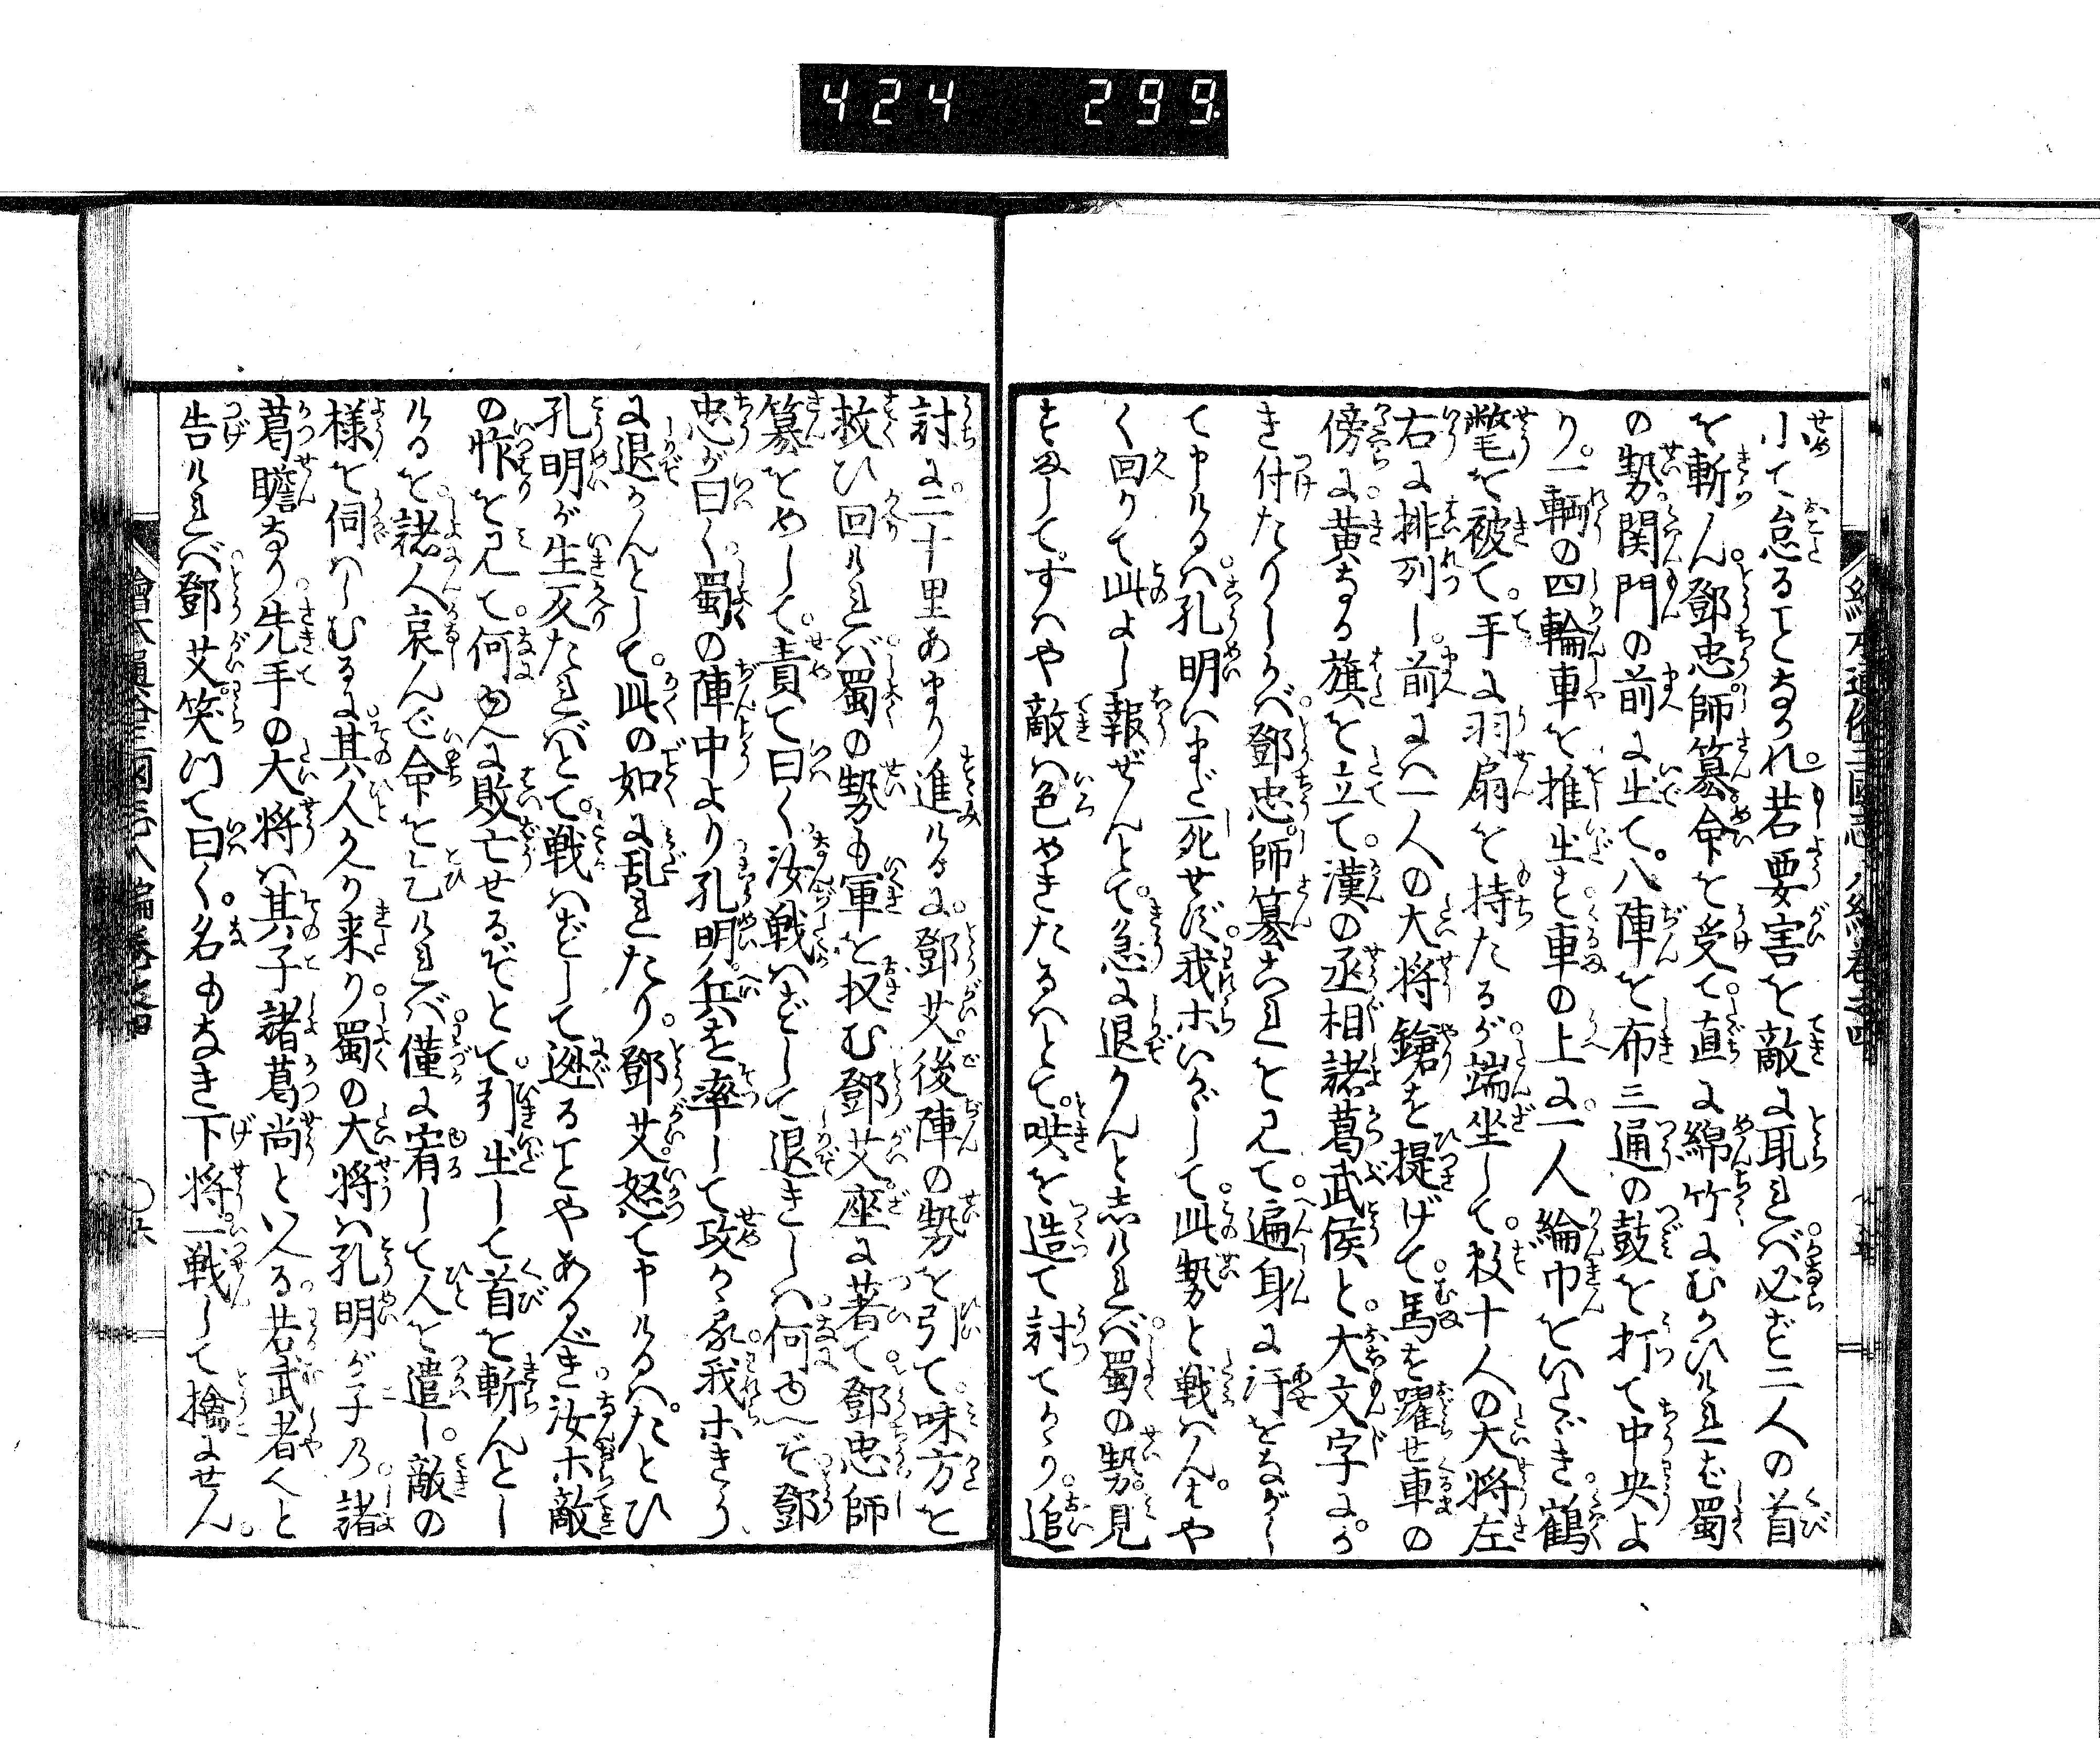 424 299
繪本通俗三國志八編巻之四
小て怠ることなかれ。若要害を敵に取れバ必ず二人の首
を斬ん。鄧忠師纂命を受て直に綿竹にむかひけれバ蜀
の勢関門の前に出て。八陣を布三通の鼓を打て中央よ
り。一輌の四輪車を推出す車の上に。一人綸巾をいたゞき鶴
氅を被て。手に羽扇を持たるが端坐して。数十人の大将左
右に排列し。前にハ一人の大将鎗を提げて。馬を躍せ車の
傍に。黄なる旗を立て。漢の丞相諸葛武侯と。大文字に。か
き付たりしかバ鄧忠。師纂これを見て。遍身に汗をながし
て申けるハ孔明いまだ死せず。我ホいかでして。此勢と戦ハん。はや
く回りて此よし報ぜんとて。急に退かんとしけれバ。蜀の勢。見
すまして。すハや敵ハ色めきたるハとて。哄を造て討てかゝり。追
討に。二十里あまり進けるに。鄧艾。後陣の勢を引て。味方を
救ひ回けれバ。蜀の勢も軍を収む鄧艾。座に著て。鄧忠師
纂をめして。責て曰く。汝戦ハずして退きしハ何ゆへぞ鄧
忠が曰く。蜀の陣中より孔明。兵を率して攻かゝる我ホきう
に退かんとして。此の如に乱れたり。鄧艾怒て申けるハ。たとひ
孔明が生反たれバとて。戦ハずして迯ることやあるべき汝ホ敵
の怍を見て。何ゆへに敗亡せるぞとて。引出して首を斬んとし
けるを諸人哀んで命を乞けれバ。僅に宥して人を遣し。敵の
様を伺ハしむるに其人かへり来り。蜀の大将ハ孔明が子の諸
葛瞻なり。先手の大将ハ其子諸葛尚といへる若武者也と
告けれバ鄧艾。笑つて曰く。名もなき下将一戦して擒にせん。
繪本通俗三國志八編巻之四